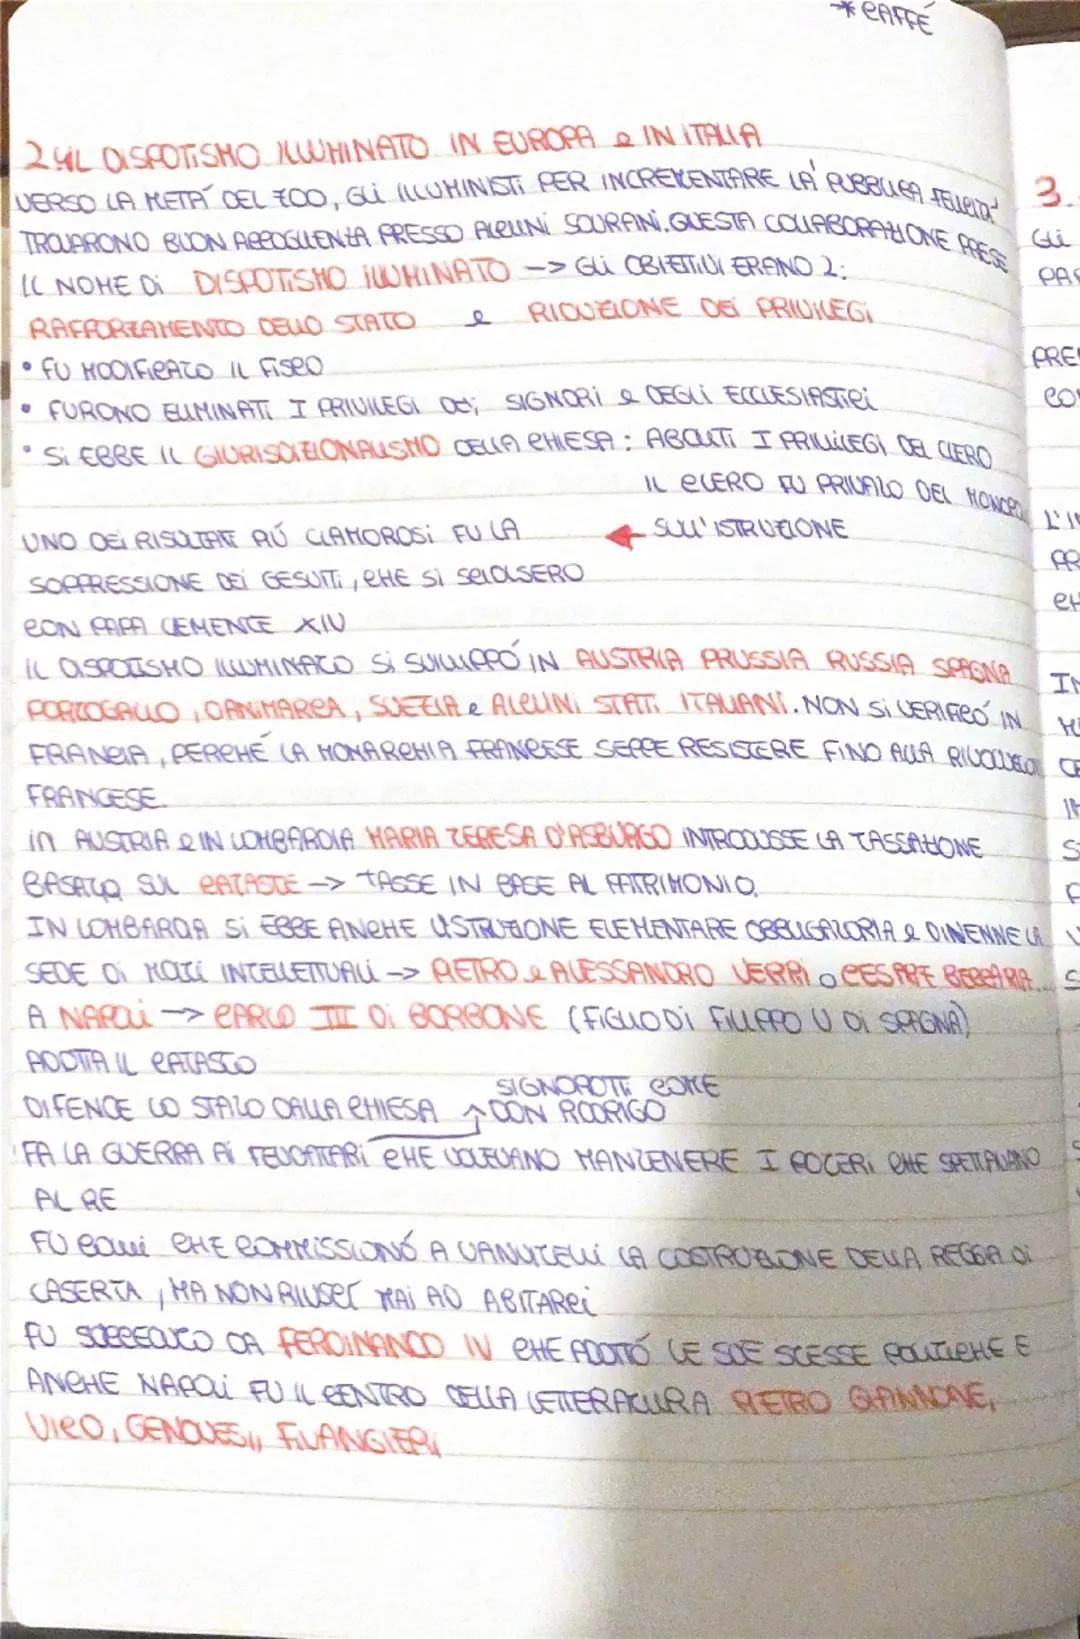 * CAFFÉ
2. IL DISPOTISMO ILLUMINATO IN EUROPA e IN ITALIA
VERSO LA METÀ DEL 700, GLI ILLUMINISTI PER INCREMENTARE LA PUBBLICA FELICITÀ
TROVARONO BUON ACCOGLIENZA PRESSO ALCUNI SOVRANI. QUESTA COLLABORAZIONE PRESE
IL NOME DI DISPOTISMO ILLUMINATO --> GLI OBIETTIVI ERANO 2:
RAFFORZAMENTO DELLO STATO e RIDUZIONE DEI PRIVILEGI
• FU MODIFICATO IL FISCO
• FURONO ELIMINATI I PRIVILEGI DEI SIGNORI e DEGLI ECCLESIASTICI
• SI EBBE IL GIURISDIZIONALISMO DELLA CHIESA: ABOLITI I PRIVILEGI DEL CLERO
IL CLERO FU PRIVATO DEL MONOPOLIO
SULL'ISTRUZIONE
UNO DEI RISULTATI PIÚ CLAMOROSI FU LA
SOPPRESSIONE DEI GESUITI, CHE SI SCIOLSERO
CON PAPA CLEMENTE XIV
IL DISPOTISMO ILLUMINATO SI SVILUPPÓ IN AUSTRIA PRUSSIA RUSSIA SPAGNA
PORTOGALLO, DANIMARCA, SVEZIA e ALCUNI STATI ITALIANI. NON SI VERIFICÓ IN
FRANCIA, PERCHÉ LA MONARCHIA FRANCESE SEPPE RESISTERE FINO ALLA
FRANCESE.
IN AUSTRIA e IN LOMBARDIA MARIA TERESA D'ASBURGO INTRODUSSE LA TASSAZIONE
BASATA SUL CATASTO --> TASSE IN BASE AL PATRIMONIO.
IN LOMBARDIA SI EBBE ANCHE L'ISTRUZIONE ELEMENTARE OBBLIGATORIA e DIVENNE LA
SEDE DI MOLTI INTELLETTUALI --> PIETRO e ALESSANDRO VERRI o CESARE BECCARIA...
A NAPOLI --> CARLO III DI BORBONE (FIGLIO DI FILIPPO V DI SPAGNA)
ADOTTA IL CATASTO
DIFENDE LO STATO DALLA CHIESA
SIGNOROTTI COME
DON RODRIGO
FA LA GUERRA AI FEUDATARI CHE VOLEVANO MANTENERE I POTERI CHE SPETTAVANO
AL RE
FU COLUI CHE COMMISSIONÓ A VANVITELLI LA COSTRUZIONE DELLA REGGIA DI
CASERTA, MA NON RIUSCÍ MAI AD ABITARCI
FU SUCCEDUTO DA FERDINANDO IV CHE ADOTTÓ LE SUE STESSE POLITICHE E
ANCHE NAPOLI FU IL CENTRO DELLA LETTERATURA PIETRO GIANNONE,
VICO, GENOVESI, FILANGIERI
3.
GLI